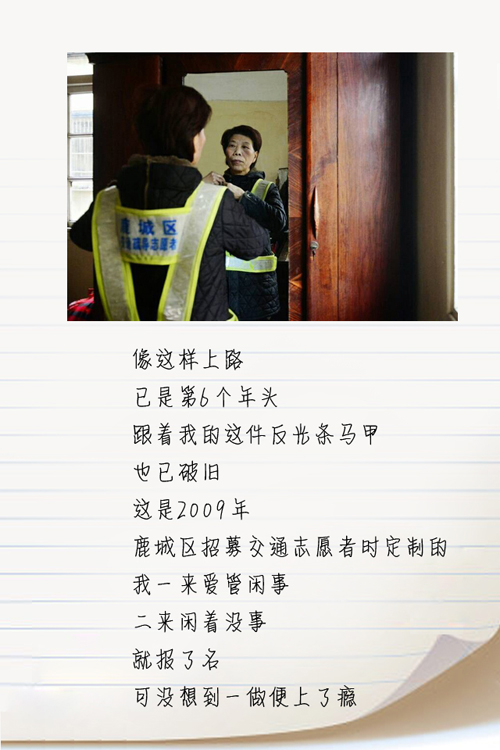 鹿城区
志愿者
像这样上路
已是第6个年头
跟着我的这件反光条马甲
也已破旧
这是2009年
鹿城区招募交通志愿者时定制的
我一来爱管闲事
二来闲着没事
就报了名
可没想到一做便上了瘾